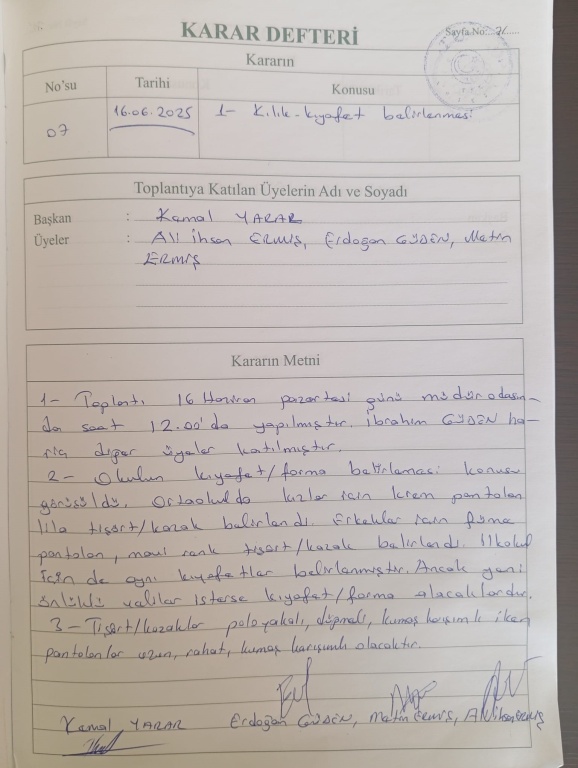 KARAR DEFTERİ
Sayfa No:
Kararın
No'su
Tarihi
Konusu
07
16.06.2025
1- Kılık-kıyafet belirlenmesi
Toplantıya Katılan Üyelerin Adı ve Soyadı
Başkan : Kamal YARAR
Üyeler : Ali İhsan ERMİŞ, Erdoğan GÜDEN, Metin
ERMİŞ
Kararın Metni
1- Toplantı 16 Haziran pazartesi günü müdür odasın-
da saat 12.00'da yapılmıştır. İbrahim GÜDEN ha-
riç diğer üyeler katılmıştır.
2- Okulun kıyafet/forma belirlemesi konusu
görüşüldü. Ortaokulda kızlar için krem pantolon
lila tişört/kazak belirlendi. Erkekler için füme
pantolon, mavi renk tişört/kazak belirlendi. İlkokul
için de aynı kıyafetler belirlenmiştir. Ancak yeni
önlüklü veliler isterse kıyafet/forma alacaklardır.
3- Tişört/kazaklar polo yakalı, düğmeli, kumaş karışımlı iken
pantolonlar uzun, rahat, kumaş karışımlı olacaktır.
Kamal YARAR Erdoğan GÜDEN, Metin ERMİŞ, Ali İhsan ERMİŞ